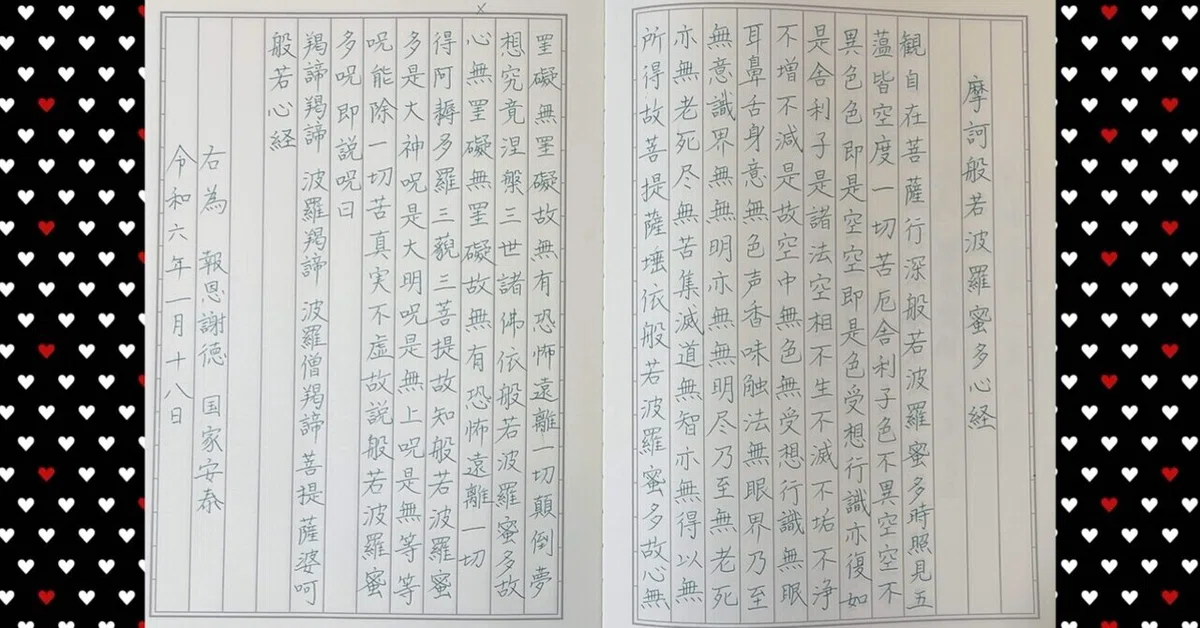 摩訶般若波羅蜜多心経
観自在菩薩行深般若波羅蜜多時照見五
薀皆空度一切苦厄舎利子色不異空空不
異色色即是空空即是色受想行識亦復如
是舎利子是諸法空相不生不滅不垢不浄
不増不減是故空中無色無受想行識無眼
耳鼻舌身意無色声香味触法無眼界乃至
無意識界無無明亦無無明尽乃至無老死
亦無老死尽無苦集滅道無智亦無得以無
所得故菩提薩埵依般若波羅蜜多故心無
罣礙無罣礙故無有恐怖遠離一切顛倒夢
想究竟涅槃三世諸佛依般若波羅蜜多故
x心無罣礙無罣礙故無有恐怖遠離一切
得阿耨多羅三藐三菩提故知般若波羅蜜
多是大神呪是大明呪是無上呪是無等等
呪能除一切苦真実不虚故説般若波羅蜜
多呪即説呪曰
羯諦羯諦 波羅羯諦 波羅僧羯諦 菩提薩婆呵
般若心経
右為 報恩謝徳 国家安泰
令和六年一月十八日